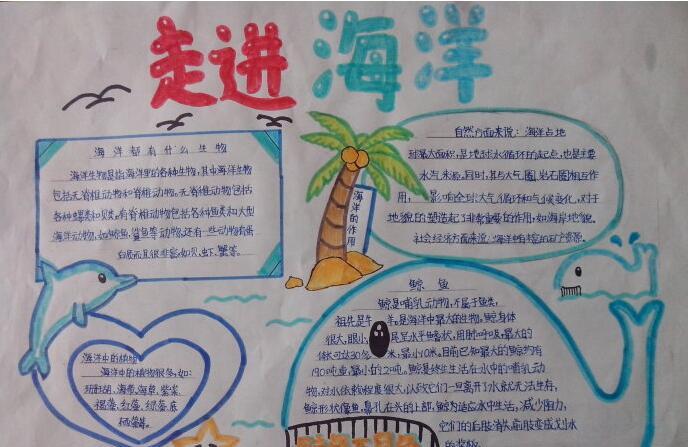 走进海洋
海洋都有什么生物
海洋生物是指海洋里的各种生物，其中海洋生物
包括无脊椎动物和脊椎动物。无脊椎动物包括
各种螺类和贝类。有脊椎动物包括各种鱼类和大型
海洋动物，如鲸鱼，鲨鱼等动物。还有一些动物有
自然方面来说：海洋占地
球最大面积，是地球水循环的起点，也是主要
水气来源。同时，其与大气圈，岩石圈相互作
用，影响全球大气循环和气候变化，对于
地貌的塑造起到非常重要的作用，如海岸地貌。
社会经济方面来说：海洋中有的矿产资源。
海洋的作用
鲸鱼
鲸鱼是哺乳动物，不属于鱼类，
祖先是牛羊，是海洋中最大的生物。鲸身体
很大，眼小，尾呈水平鳍状，用肺呼吸，最大的
体长可达30多米，最小10米，目前已知最大的鲸约有
190吨重，最小的2吨。鲸是终生生活在水中的哺乳动
物，对水依赖程度很大，以致它们一旦离开了水就无法生存，
鲸形状像鱼，鼻孔在头的上部，鲸为适应水中生活，减少阻力，
它们的后肢消失，前肢变成划水
海洋中的植物
海洋中的植物很多，如：
海带，海草，紫菜
红藻，绿藻